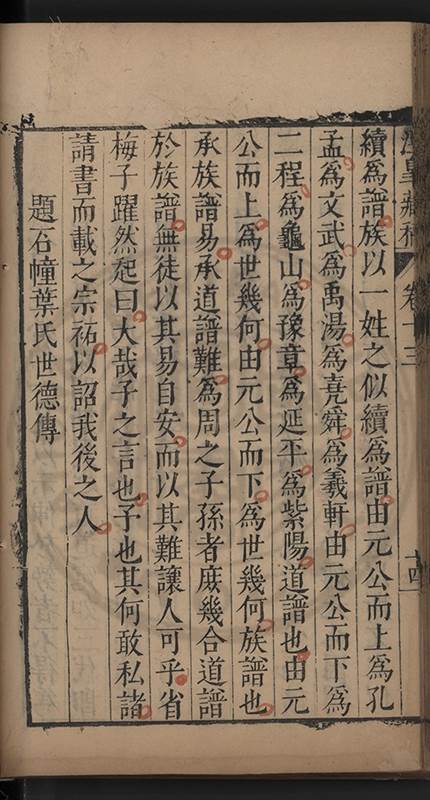 涇皋藏稿 卷十三 十四
續為譜族以一姓之似續為譜由元公而上為孔
孟為文武為禹湯為堯舜為羲軒由元公而下為
二程為龜山為豫章為延平為紫陽道譜也由元
公而上為世幾何由元公而下為世幾何族譜也
承族譜易承道譜難為周之子孫者庶幾合道譜
於族譜無徒以其易自安而以其難讓人可乎省
梅子躍然起曰大哉子之言也予也其何敢私諸
請書而載之宗祏以詔我後之人
題石幢葉氏世德傳